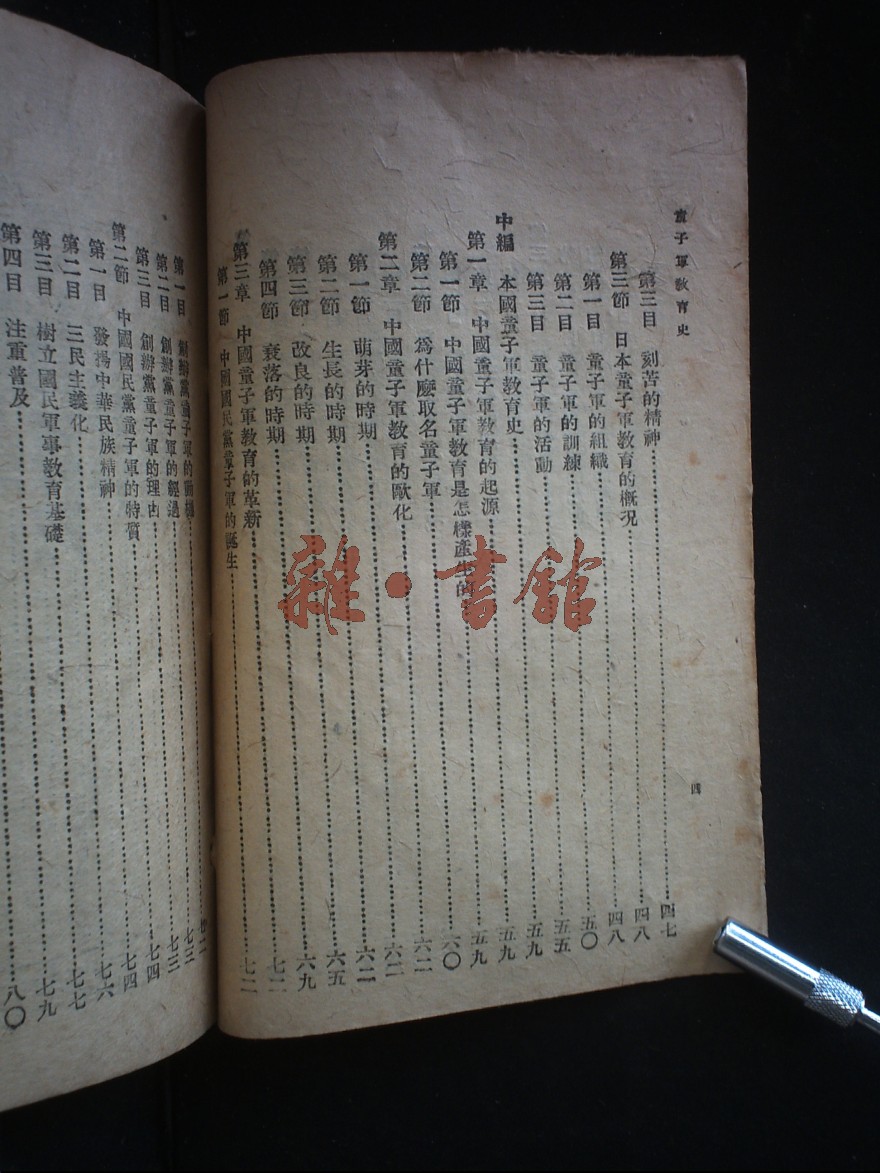 童子軍教育史
四
第三目 刻苦的精神……四七
第三節 日本童子軍教育的概況……四八
第一目 童子軍的組織……四八
第二目 童子軍的訓練……五〇
第三目 童子軍的活動……五五
中編 本國童子軍教育史……五九
第一章 中國童子軍教育的起源……五九
第一節 中國童子軍教育是怎樣產生的……五九
第二節 爲什麼取名童子軍……六〇
第二章 中國童子軍教育的歐化……六二
第一節 萌芽的時期……六二
第二節 生長的時期……六二
第三節 改良的時期……六五
第四節 衰落的時期……六九
第三章 中國童子軍教育的革新……七二
第一節 中國國民黨童子軍的誕生……七二
第一目 創辦黨童子軍的動機……七二
第二目 創辦黨童子軍的經過……七三
第三目 創辦黨童子軍的理由……七三
第二節 中國國民黨童子軍的特質……七四
第一目 發揚中華民族精神……七四
第二目 三民主義化……七六
第三目 樹立國民軍事教育基礎……七七
第四目 注重普及……七九
八〇
雜·書館